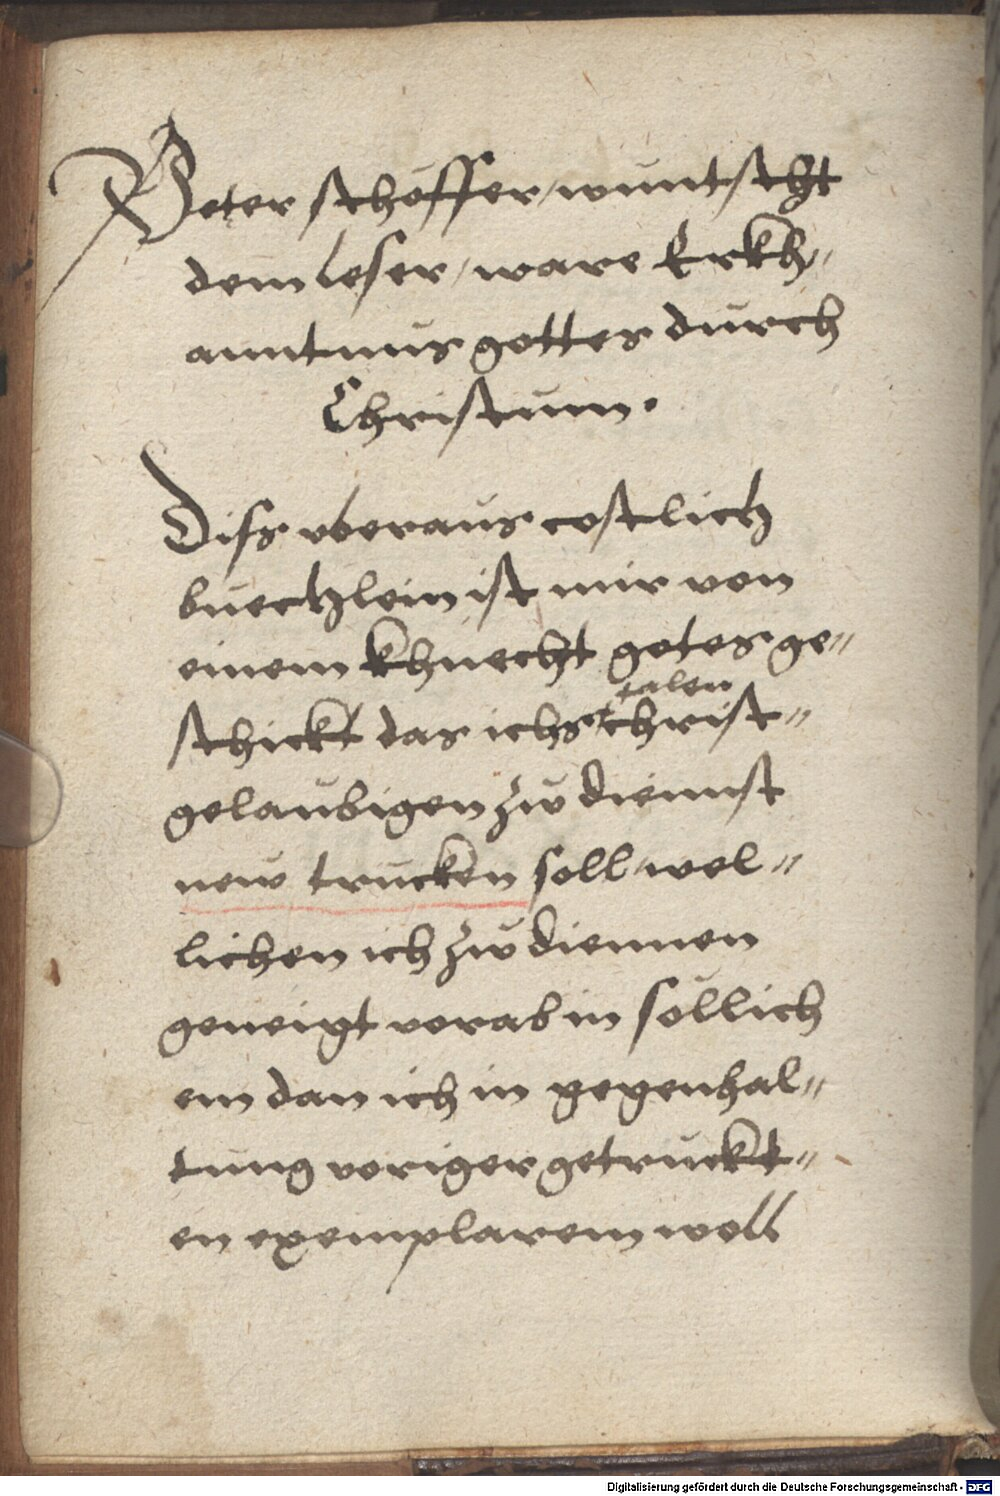 Peter schöffer / wuntscht
dem leser / ware Erkh⸗
anntnus gottes durch
Christum.
Diss vberaus costlich
buechlein ist mir von
einem khnecht gotes ge⸗
talen
schickt das ichs christ⸗
gelaubigen zw diennst
new trucken soll / wel⸗
lichen ich zw diennen
geneigt vorab in söllich
em dan ich in gegenhal⸗
tung voriger getruckt⸗
en exemplarem woll
Digitalisierung gefördert durch die Deutsche Forschungsgemeinschaft - DFG